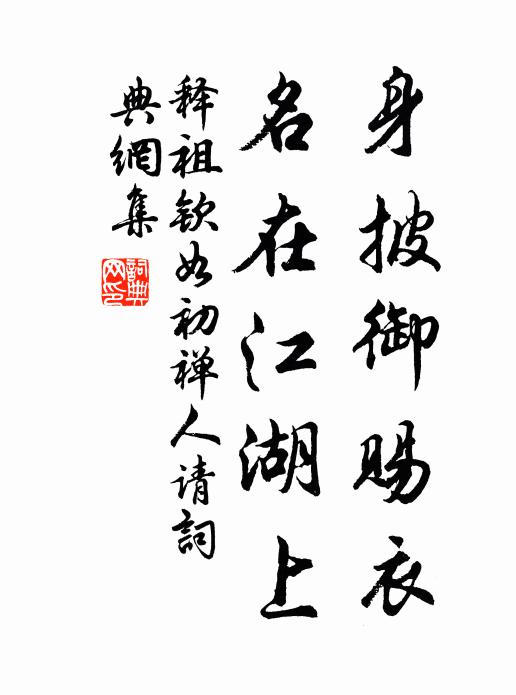 身披御赐衣
名在江湖上
释祖钦如初禅人请詞
典網集
詞典网印